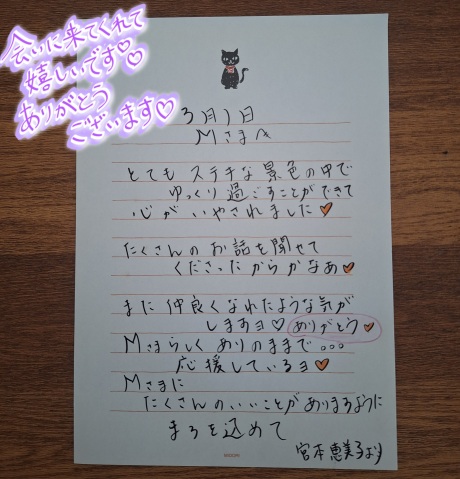 会いに来てくれて
嬉しいです♡
ありがとう
ございます♡
3月1日
Mさまへ
とても ステキな 景色の中で
ゆっくり過ごすことができて
心がいやされました♡
たくさんの お話を聞せて
くださったからかなぁ♡
また 仲良くなれたような気が
しますヨ♡ ありがとう♡
Mさまらしく ありのままで...
応援しているヨ♡
Mさまに
たくさんのいいことがありまるように
まろを込めて
宮本恵美子より